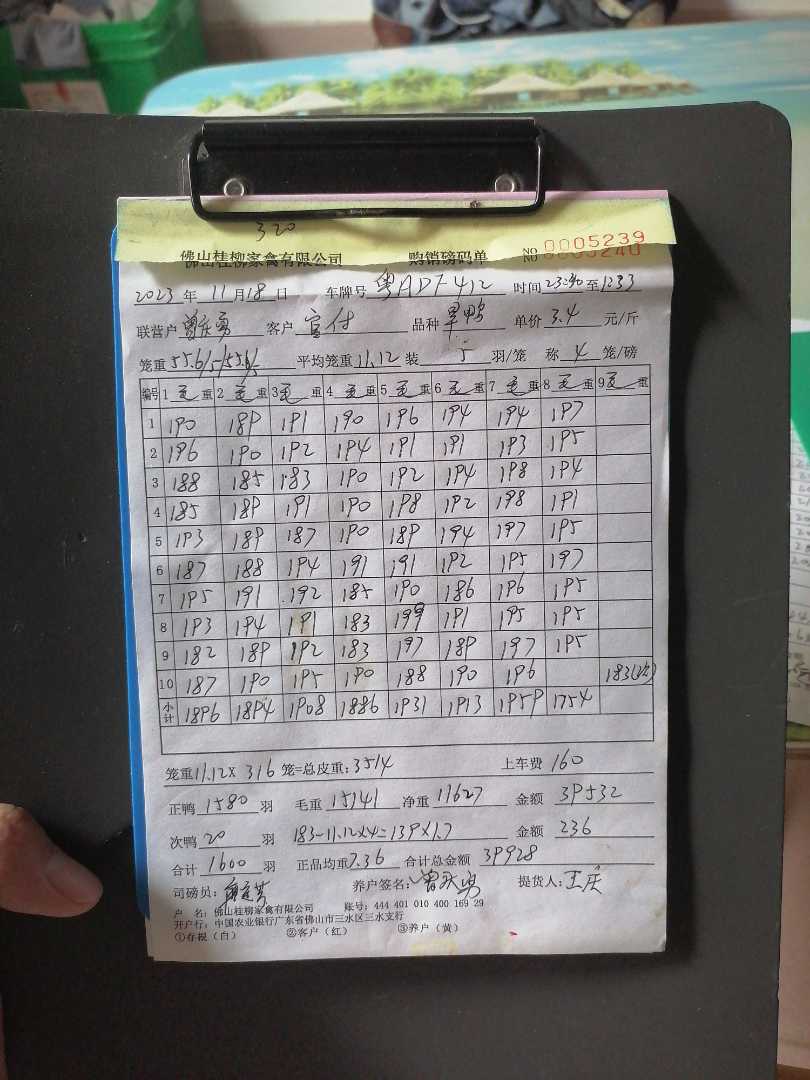 320
佛山桂柳家禽有限公司 购销磅码单 NO 0005239
NO 0005240
2023 年 11 月 18 日 车牌号 粤ADF412 时间 23:40 至 1233
联营户 曾庆勇 客户 宣付 品种 单价 3.4 元/斤
笼重 55.6/5-/55.6/- 平均笼重 11.12 装 5 羽/笼 称 4 笼/磅
编号 1 毛重 2 毛重 3 毛重 4 毛重 5 毛重 6 毛重 7 毛重 8 毛重 9 毛重
1 190 189 191 190 196 194 194 197
2 196 190 192 194 191 191 193 195
3 188 185 183 190 192 194 198 194
4 185 189 191 190 198 192 198 191
5 193 189 187 190 189 194 197 195
6 187 188 194 191 191 192 195 197
7 195 191 192 185 190 186 196 195
8 193 194 191 183 199 191 195 195
9 182 189 192 183 197 189 197 195
10 187 190 195 190 188 190 196 183(次)
小计 1896 1894 1908 1886 1931 1913 1959 1754
笼重 11.12× 316 笼=总皮重: 3514 上车费 160
正鸭 1580 羽 毛重 15141 净重 11627 金额 39532
次鸭 20 羽 183-11.12×4=139×1.7 金额 236
合计 1600 羽 正品均重 7.36 合计总金额 39928
司磅员: 养户签名: 曾庆勇 提货人: 王庆
户 名: 佛山桂柳家禽有限公司 账号: 444 401 010 400 169 29
开户行: 中国农业银行广东省佛山市三水区三水支行
①存根(白) ②客户(红) ③养户(黄)